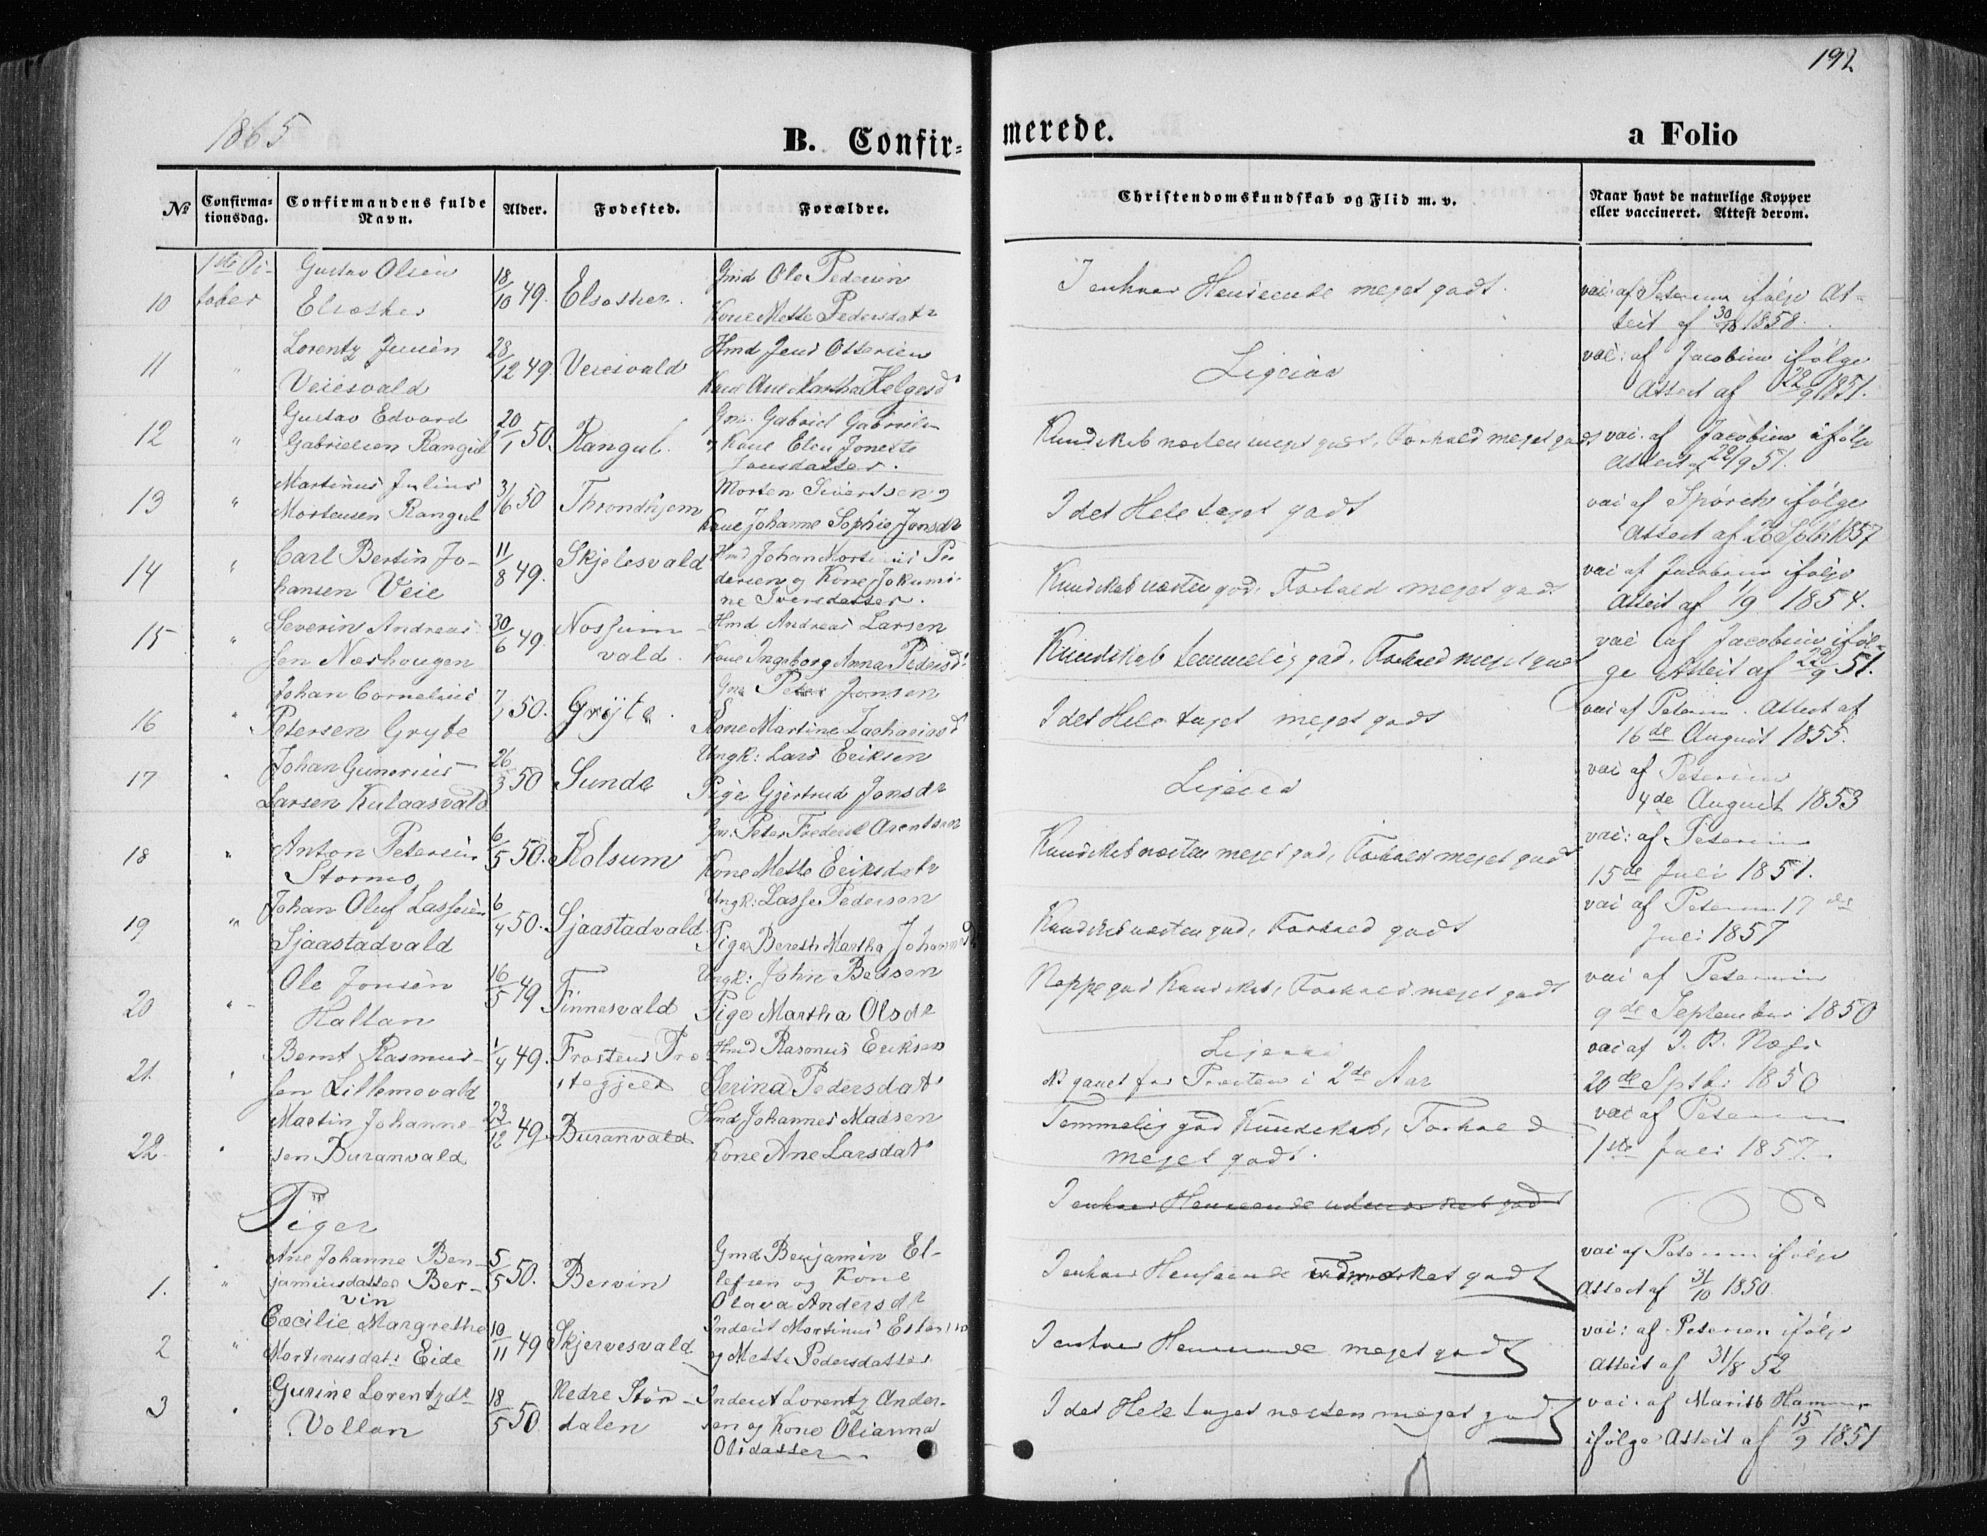 192
1865
B. Confir=
merede.
a Folio
No
Confirma-
tionsdag.
Confirmandens fulde
Navn.
Alder.
Fødested.
Forældre.
Christendomskundskab og Flid m. v.
Naar havt de naturlige Kopper
eller vaccineret. Attest derom.
10
1ste Oc-
tober
Gustav Olsen
Elsether
18/10 49.
Gmd Ole Pedersen
Kone Mette Pedersdatr
I enhver Henseende meget godt.
vac: af Petersen ifølge At-
test af 30/10 1858.
11
Lorentz Jensen
Veiesvald
28/12 49.
Veiesvald
Hmd Jens Ottersen
Kone Ane Martha Helgesd
Ligesaa
vac: af Jacobsen ifølge
Attest af 22/9 1851.
12
"
Gustav Edvard
Gabrielsen Rangul
20/1 50.
Rangul.
Gm. Gabriel Gabriels
Kone Elen Jonette
Jensdatter.
Kundskab næsten meget god, Forhold meget godt
vac. af Jacobsen ifølge
Attest af 22/9 51.
13
"
Martinus Julius
Mortensen Rangul
3/6 50
Throndhjem
Morten Sivertsen og
Kone Johanne Sophie Jonsdr
I det Hele taget godt
vac af Spørck ifølge
Attest af 26 Septbr 1857
14
"
Carl Bertin Jo-
hansen Veie
11/8 49.
Skjelesvald
Hmd Johan Pe-
dersen og Kone Jokumi-
ne Iversdatter.
Kundskab næsten god, Forhold meget godt
vac af Jacobsen ifølge
Attest af 1/9 1854.
15
"
Severin Andreas-
sen Neshougen
30/6 49.
Nossum-
vald.
Hmd Andreas Larsen
Kone Ingeborg Anna Pedersd
Kundskab temmelig god, Forhold meget godt
vac af Jacobsen iføl-
ge Attest af 22/9 51.
16
"
Johan Cornelius
Petersen Gryte
50.
Gryte.
Gm Peter Jonsen
Kone Martine Zachariasd
I det Hele taget meget godt
vac af Petersen. Attest af
16de August 1855.
17
Johan Gunerius
Larsen Kulaasvald
26/3 50
Sunde
Ungk: Lars Eriksen
Pige Gjertrud Jonsdr
Ligesaa
vac af Petersen
4de August 1853
18
"
Anton Petersen
Stormo
6/5 50.
Kolsum
Gm. Peter Frederik Arentsen
Kone Mette Eriksdatr
Kundskab næsten meget god, Forhold meget godt
vac: af Petersen
15de Juli 1851.
19
"
Johan Oluf Lassesen
Sjaastadvald
6/4 50.
Sjaastadvald
Ungk: Lasse Pedersen
Pige Bereth Martha Johannd
Kundskab næsten god, Forhold godt
vac af Petersen 17de
Juli 1857
20
"
Ole Jonsen
Haltan
16/5 49
Finnesvald
Ungk: John Bensen
Pige Martha Olsdr
Neppe god Kundskab, Forhold meget godt
vac af Petersen
9de September 1850
21.
Bernt Rasmus-
sen Lillemovald
1/4 49.
Frostens Præ-
stegjeld
Hmd Rasmus Eriksen
Serina Pedersdatr
Ligesaa
gaaet for Præsten i 2de Aar
vac af
20de Septbr 1850
22.
Martin Johanne-
sen Buranvald
23/12 49
Buranvald
Hmd Johannes Madsen
Kone Ane Larsdatr
Temmelig god Kundskab, Forhold
meget godt.
vac: af Petersen
1ste Juli 1857.
I enhver Henseende udmærket godt
Piger
1.
"
Ane Johanne Ben-
jaminsdatter Ber-
vin
5/5 50.
Bervin
Gmd Benjamin El-
lefsen og Kone
Olava Andersdr
I enhver Henseende udmærket godt
vac af Petersen ifølge
Attest af 31/10 1850.
2
"
Cæcilie Margrethe
Martinusdatr Eide
10/11 49
Skjervesvald
Inderst Martinus
og Mette Pedersdatter
I enhver Henseende meget godt
vac: af Petersen ifølge
Attest af 31/8 52
3
"
Gurine Lorentzdr
Vollan
18/5 50
Nedre Stør-
dalen
Inderst Lorentz Ander-
sen og Kone Olianna
Olsdatter
I det Hele taget næsten meget godt
vac. af Marith Hammer
ifølge Attest af 15/9 1851